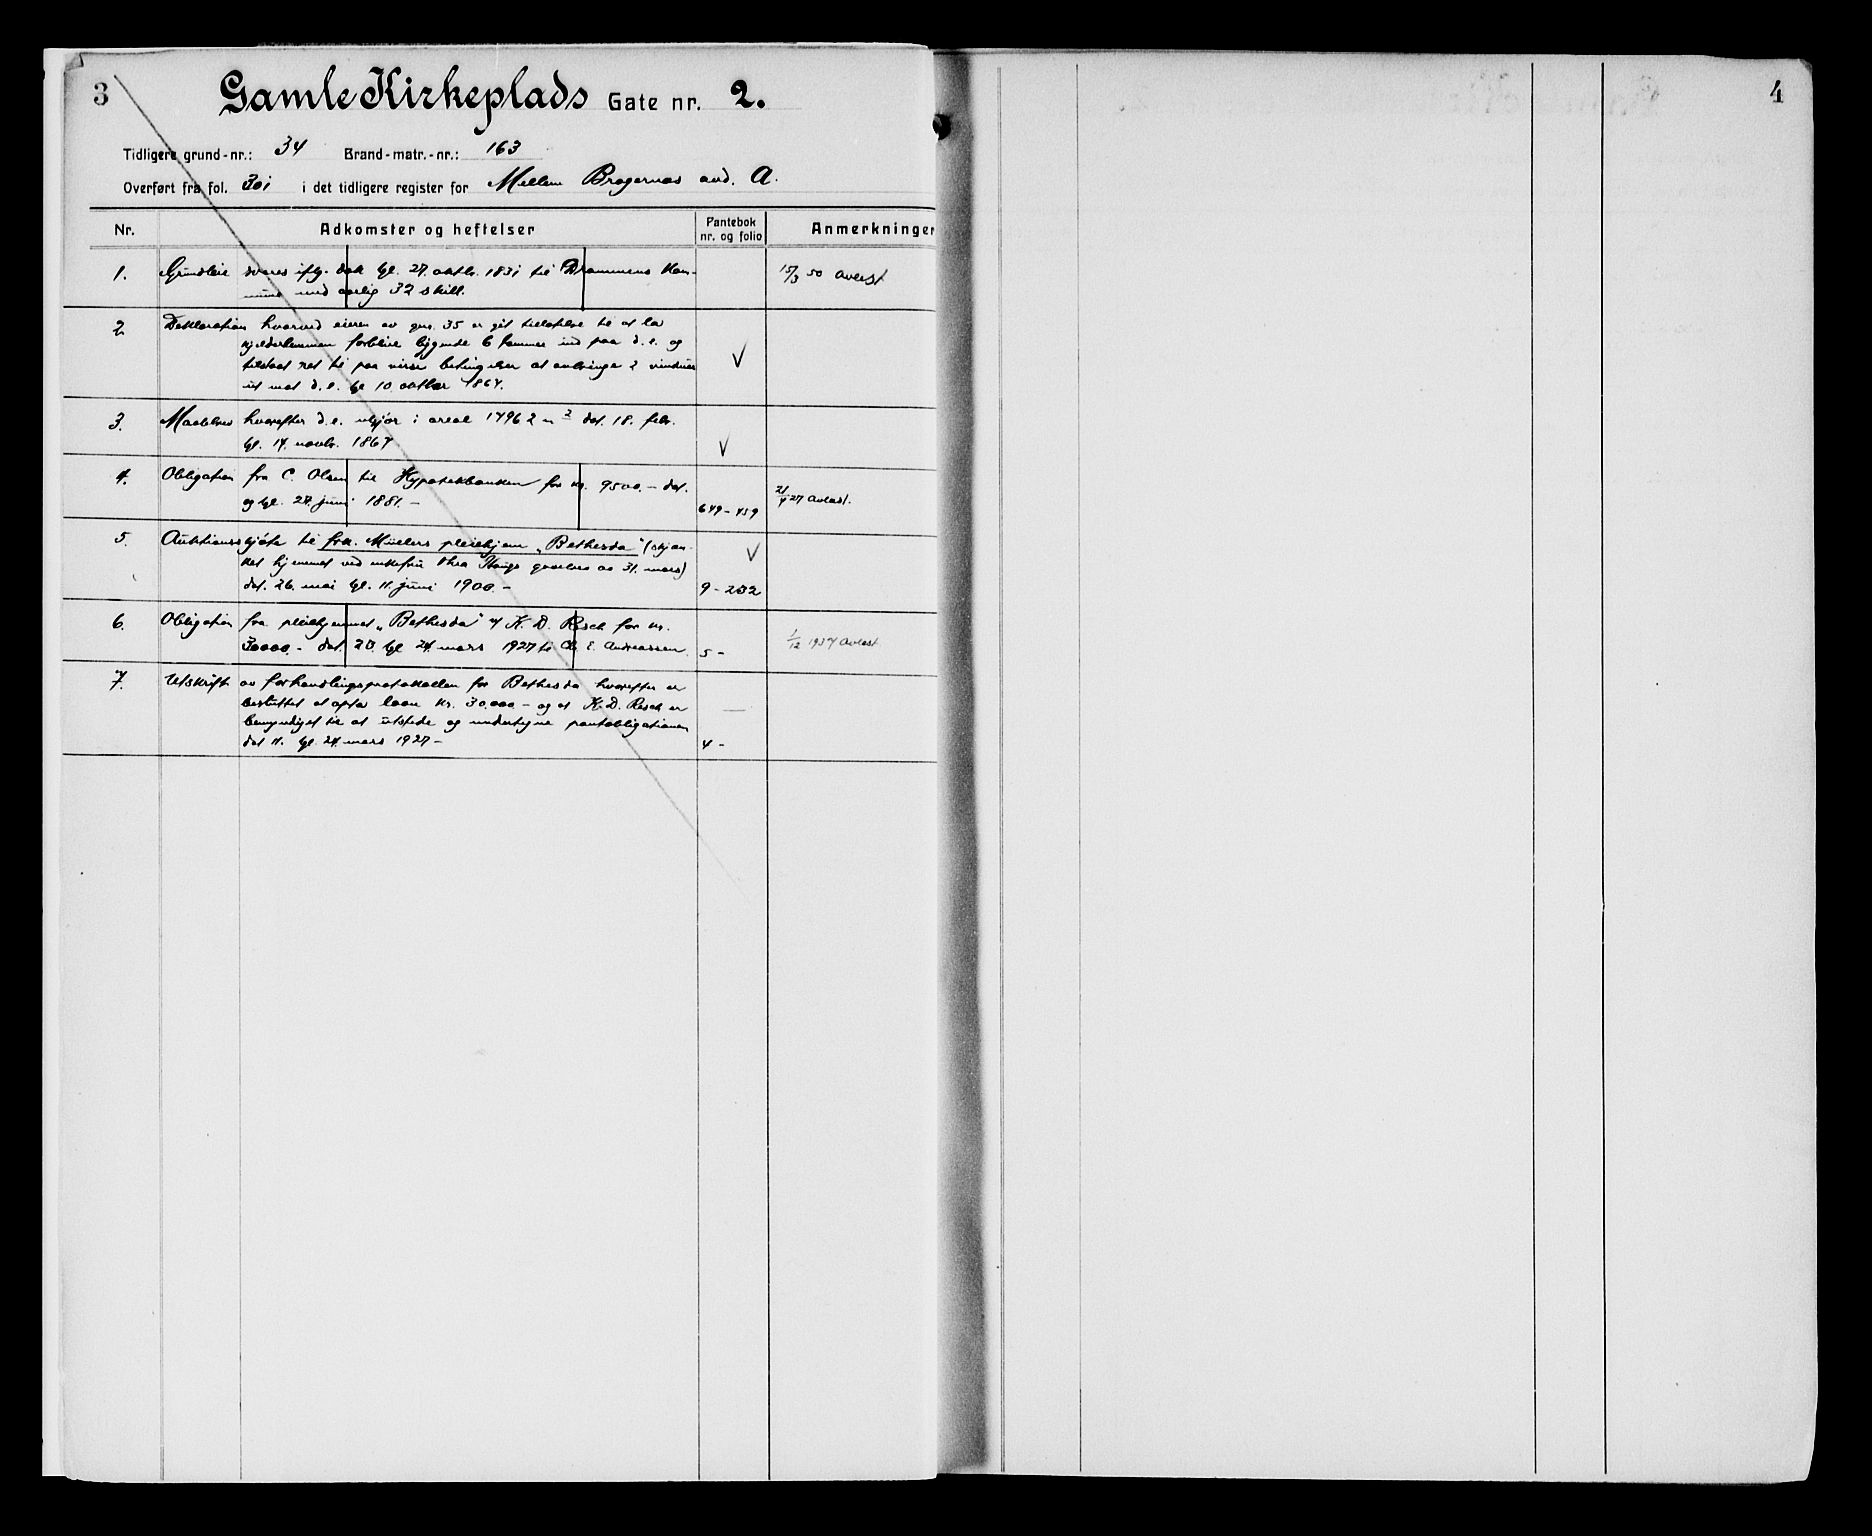 3
Gamle Kirkeplads Gate nr. 2.
Tidligere grund-nr.: 34 Brand-matr.-nr.: 163
Overført fra fol. 301 i det tidligere register for Mellem Bragernæs avd. A.
Nr. Adkomster og heftelser Pantebok nr. og folio Anmerkninger
1. Grundleie svares iflg. dok tgl. 27. oktbr. 1831 til Drammens Kom- 15/3 50 avlest
mune med aarlig 32 skill.
2. Deklaration hvorved eieren av gnr. 35 er git tilladelse til at la
kjælderlemmen forblive liggende 6 tommer ind paa d. e. og
tilstaat ret til paa visse betingelser at anbringe 2 vinduer
ut mot d. e. tgl 10 oktbr 1864.
3. Maalebrev hvorefter d. e. utgjør i areal 1496 2 m² dat. 18. febr.
tgl. 14. novbr. 1867
4. Obligation fra C. Olsen til Hypotekbanken for kr. 9500.- dat.
og tgl. 27. juni 1881.- 649-459 21/4 27 avlest.
5. Auktionsskjøte til frk. Müllers pleiehjem „Bethesda" (skjæn-
ket hjemmet ved enkefru Thea Hauge gavebrev av 31. mars)
dat. 26. mai tgl. 11. juni 1900.- 9-232
6. Obligation fra pleiehjemmet „Bethesda" v/ K. D. Resch for kr.
30000.- dat. 20. tgl 24. mars 1927 til Chr. E. Andreassen. 5- 1/12 1937 avlest
7. Utskrift av forhandlingsprotokollen for Bethesda hvorefter er
besluttet at opta laan kr. 30.000- og at K. D. Resch er
bemyndiget til at utstede og undertegne pantobligationen
dat 11. tgl. 24. mars 1927- 4-
4